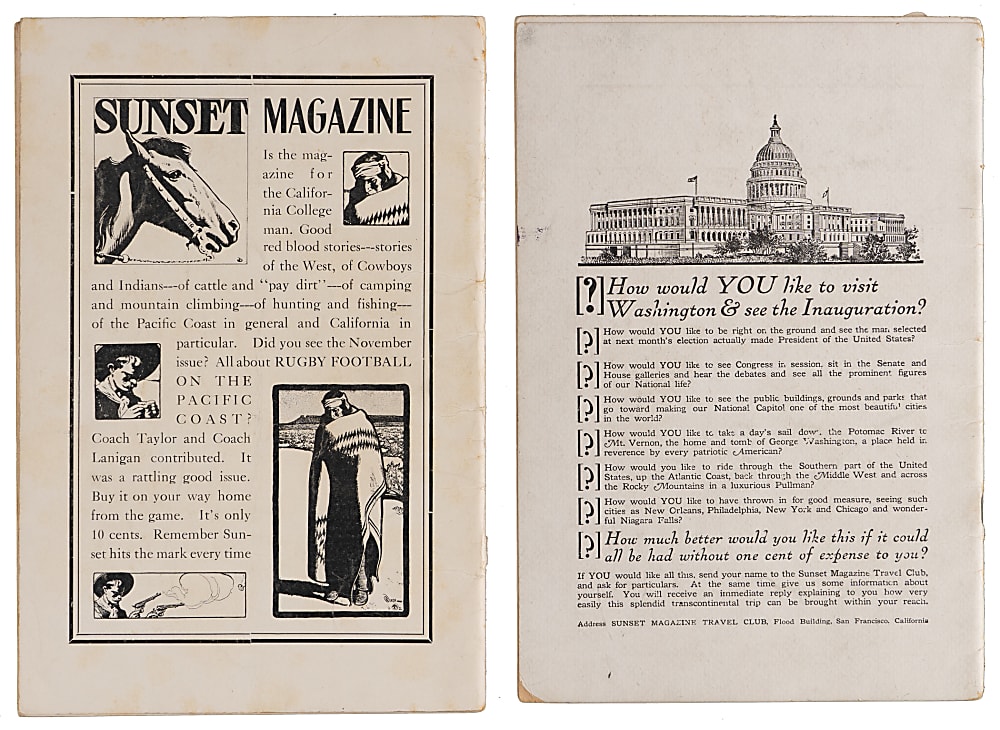 SUNSET MAGAZINE
Is the mag-
azine for
the Califor-
nia College
man. Good
red blood stories---stories
of the West, of Cowboys
and Indians---of cattle and "pay dirt"---of camping
and mountain climbing---of hunting and fishing---
of the Pacific Coast in general and California in
particular. Did you see the November
issue? All about RUGBY FOOTBALL
ON THE
PACIFIC
COAST?
Coach Taylor and Coach
Lanigan contributed. It
was a rattling good issue.
Buy it on your way home
from the game. It's only
10 cents. Remember Sun-
set hits the mark every time
[?] How would YOU like to visit
Washington & see the Inauguration?
[?] How would YOU like to be right on the ground and see the man selected
at next month's election actually made President of the United States?
[?] How would YOU like to see Congress in session, sit in the Senate and
House galleries and hear the debates and see all the prominent figures
of our National life?
[?] How would YOU like to see the public buildings, grounds and parks that
go toward making our National Capitol one of the most beautiful cities
in the world?
[?] How would YOU like to take a day's sail down the Potomac River to
Mt. Vernon, the home and tomb of George Washington, a place held in
reverence by every patriotic American?
[?] How would you like to ride through the Southern part of the United
States, up the Atlantic Coast, back through the Middle West and across
the Rocky Mountains in a luxurious Pullman?
[?] How would YOU like to have thrown in for good measure, seeing such
cities as New Orleans, Philadelphia, New York and Chicago and wonder-
ful Niagara Falls?
[?] How much better would you like this if it could
all be had without one cent of expense to you?
If YOU would like all this, send your name to the Sunset Magazine Travel Club,
and ask for particulars. At the same time give us some information about
yourself. You will receive an immediate reply explaining to you how very
easily this splendid transcontinental trip can be brought within your reach.
Address SUNSET MAGAZINE TRAVEL CLUB, Flood Building, San Francisco, California